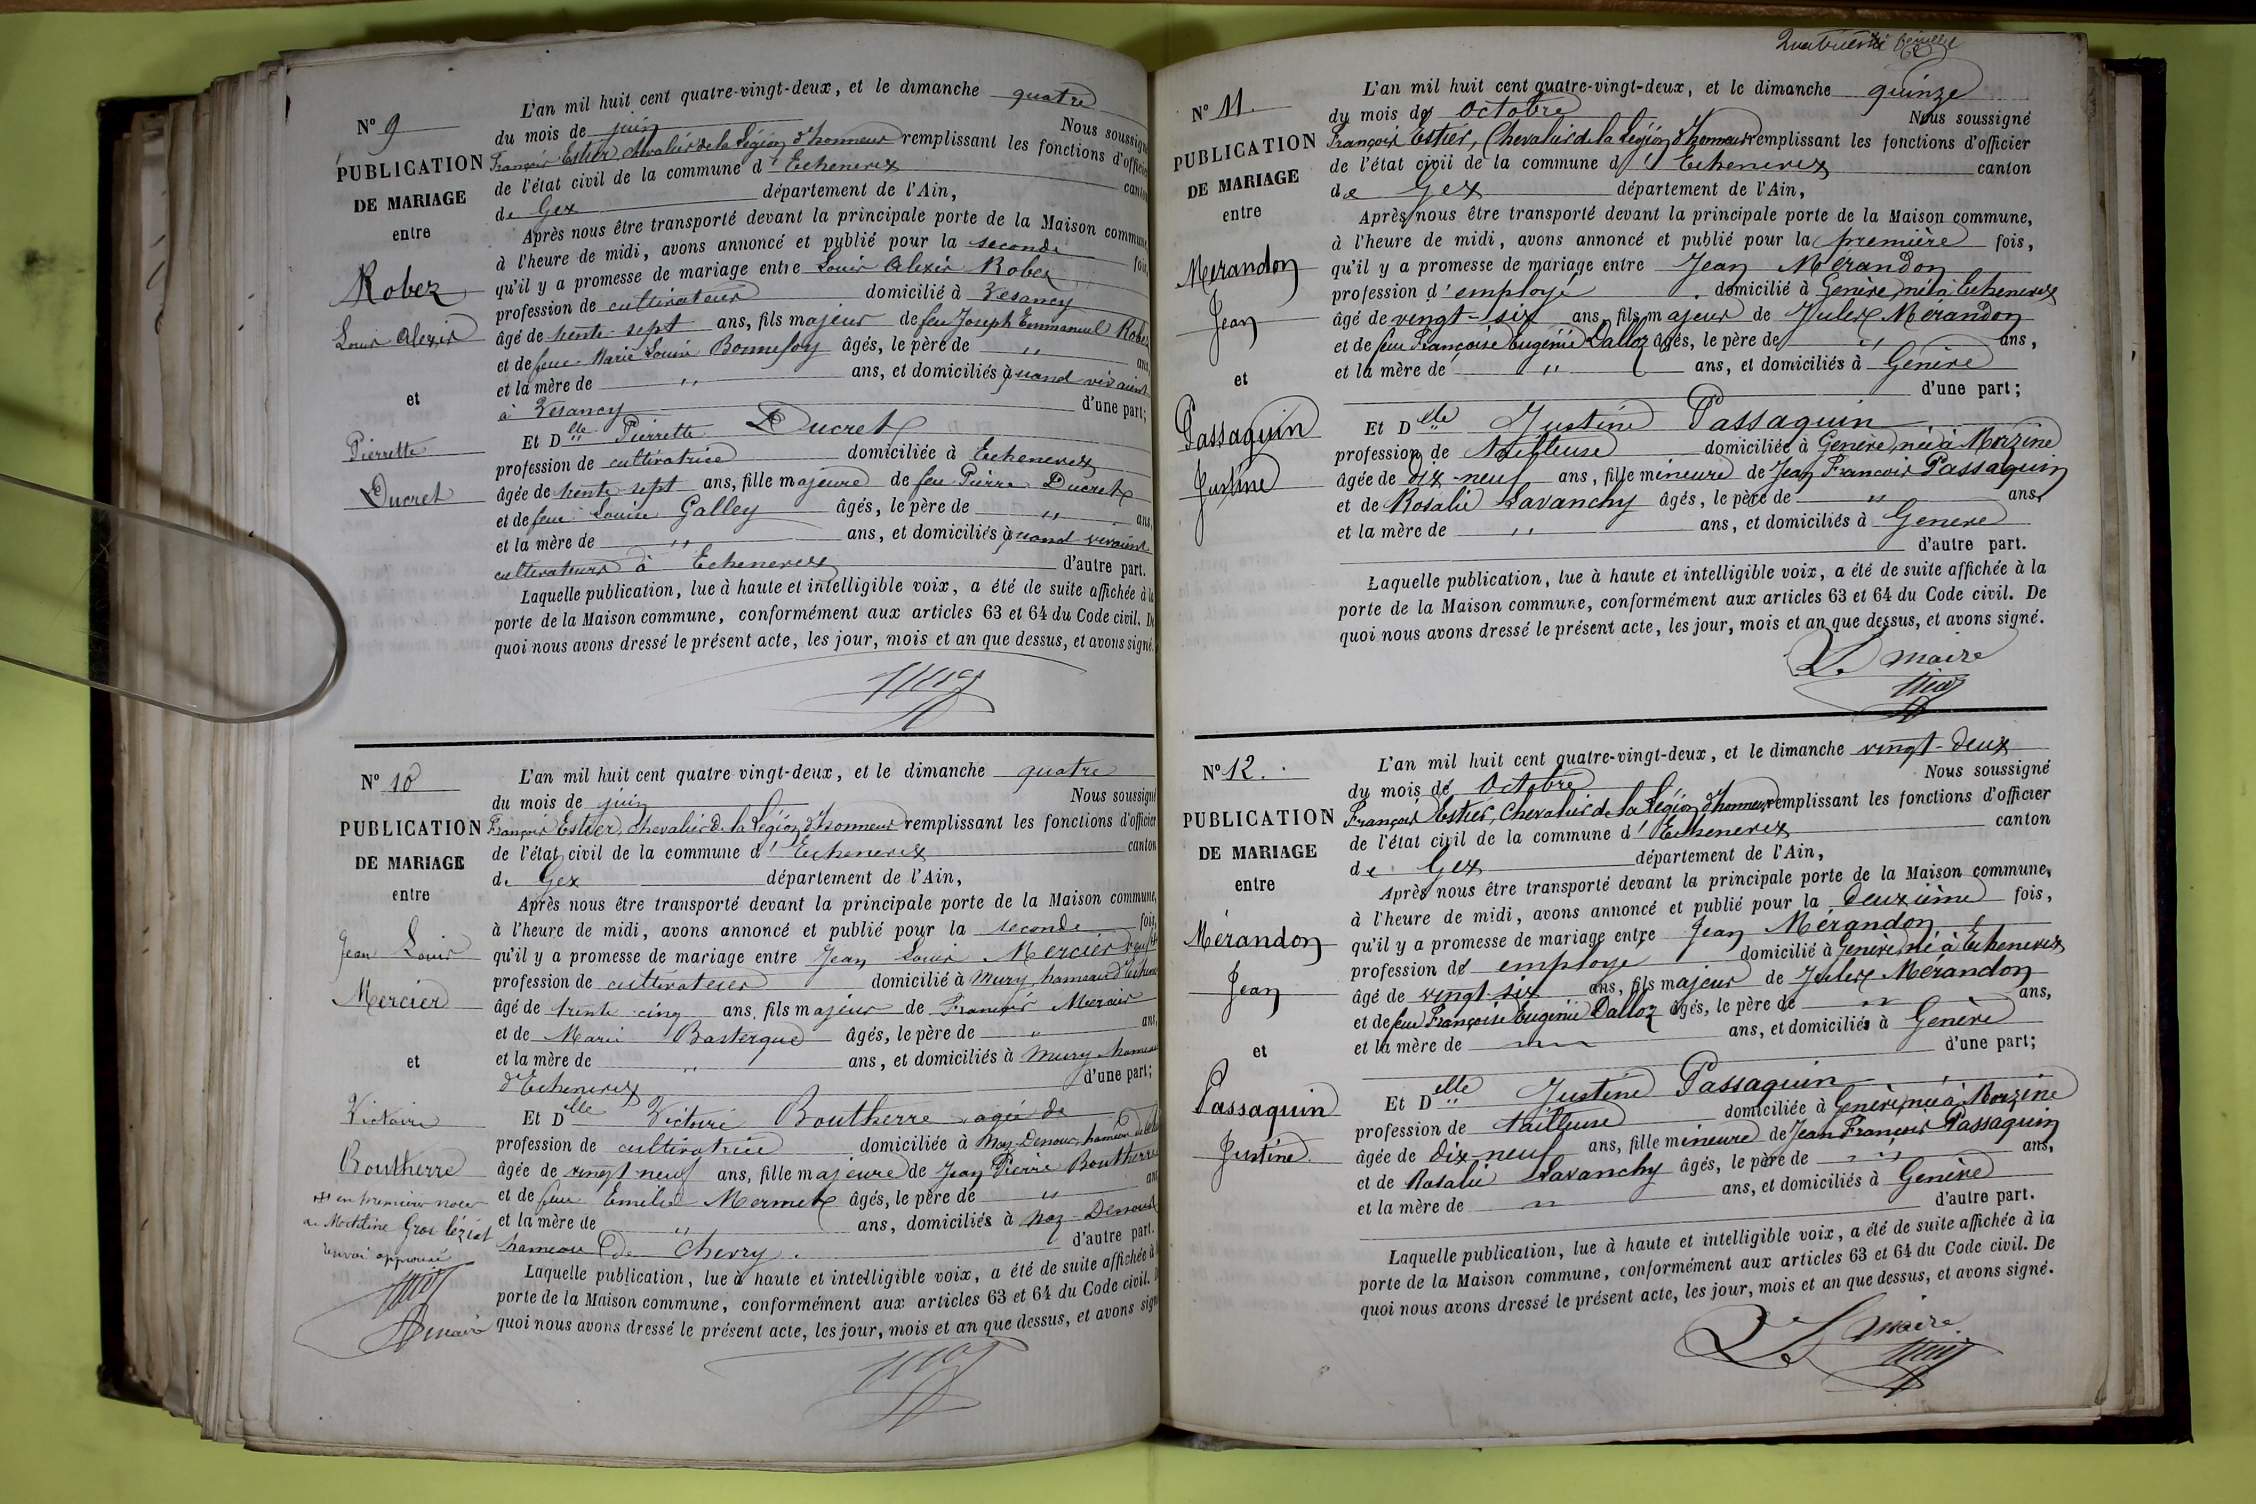 N° 9
PUBLICATION
DE MARIAGE
entre
Robez
Louis Alexis
et
Pierrette
Ducret
L'an mil huit cent quatre-vingt-deux, et le dimanche quatre
du mois de juin Nous soussigné
François Estier, Chevalier de la Légion d'honneur remplissant les fonctions d'officier
de l'état civil de la commune d'Echenevex canton
de Gex département de l'Ain,
Après nous être transporté devant la principale porte de la Maison commune,
à l'heure de midi, avons annoncé et publié pour la seconde fois,
qu'il y a promesse de mariage entre Louis Alexis Robez
profession de cultivateur domicilié à Vesancy
âgé de trente-sept ans, fils majeur de feu Joseph Emmanuel Robez
et de feue Marie Louise Bonnefoy âgés, le père de " ans,
et la mère de " ans, et domiciliés à quand vivaient
à Vesancy d'une part;
Et Dlle Pierrette Ducret
profession de cultivatrice domiciliée à Echenevex
âgée de trente-sept ans, fille majeure de feu Pierre Ducret
et de feue Louise Galley âgés, le père de " ans,
et la mère de " ans, et domiciliés à quand vivaient
cultivateurs à Echenevex d'autre part.
Laquelle publication, lue à haute et intelligible voix, a été de suite affichée à la
porte de la Maison commune, conformément aux articles 63 et 64 du Code civil. De
quoi nous avons dressé le présent acte, les jour, mois et an que dessus, et avons signé.
N° 10
PUBLICATION
DE MARIAGE
entre
Jean Louis
Mercier
et
Victoire
Boutherre
en premier noces
de
renvoi approuvé
maire
L'an mil huit cent quatre vingt-deux, et le dimanche quatre
du mois de juin Nous soussigné
François Estier, Chevalier de la Légion d'honneur remplissant les fonctions d'officier
de l'état civil de la commune d'Echenevex canton
de Gex département de l'Ain,
Après nous être transporté devant la principale porte de la Maison commune,
à l'heure de midi, avons annoncé et publié pour la seconde fois,
qu'il y a promesse de mariage entre Jean Louis Mercier veuf
profession de cultivateur domicilié à Mury, hameau d'Echenevex
âgé de trente-cinq ans, fils majeur de François Mercier
et de Marie âgés, le père de " ans,
et la mère de " ans, et domiciliés à Mury hameau
d'Echenevex d'une part;
Et Dlle Victoire Boutherre agée de
profession de cultivatrice domiciliée à Naz-Dessous, hameau de
âgée de vingt neuf ans, fille majeure de Jean Pierre Boutherre
et de feue Emilie Mermet âgés, le père de " ans
et la mère de " ans, domiciliés à Naz-Dessous
hameau de Chevry. d'autre part.
Laquelle publication, lue à haute et intelligible voix, a été de suite affichée à
porte de la Maison commune, conformément aux articles 63 et 64 du Code civil. D
quoi nous avons dressé le présent acte, les jour, mois et an que dessus, et avons signé
Quatrième feuillet
N° 11.
PUBLICATION
DE MARIAGE
entre
Mérandon
Jean
et
Passaquin
Justine
L'an mil huit cent quatre-vingt-deux, et le dimanche quinze
du mois de Octobre Nous soussigné
François Estier, Chevalier de la Légion d'honneur remplissant les fonctions d'officier
de l'état civil de la commune d'Echenevex canton
de Gex département de l'Ain,
Après nous être transporté devant la principale porte de la Maison commune,
à l'heure de midi, avons annoncé et publié pour la première fois,
qu'il y a promesse de mariage entre Jean Mérandon
profession d'employé domicilié à Genève, né à Echenevex
âgé de vingt-six ans, fils majeur de Jules Mérandon
et de feu Françoise Eugénie Dalloz âgés, le père de " ans,
et la mère de " ans, et domiciliés à Genève
d'une part;
Et Delle Justine Passaquin
profession de tailleuse domiciliée à Genève, née à Morzine
âgée de dix-neuf ans, fille mineure de Jean François Passaquin
et de Rosalie Lavanchy âgés, le père de " ans,
et la mère de " ans, et domiciliés à Genève
d'autre part.
Laquelle publication, lue à haute et intelligible voix, a été de suite affichée à la
porte de la Maison commune, conformément aux articles 63 et 64 du Code civil. De
quoi nous avons dressé le présent acte, les jour, mois et an que dessus, et avons signé.
Le maire
N° 12.
PUBLICATION
DE MARIAGE
entre
Mérandon
Jean
et
Passaquin
Justine
L'an mil huit cent quatre-vingt-deux, et le dimanche vingt-deux
du mois de Octobre Nous soussigné
François Estier, Chevalier de la Légion d'honneur remplissant les fonctions d'officier
de l'état civil de la commune d'Echenevex canton
de Gex département de l'Ain,
Après nous être transporté devant la principale porte de la Maison commune,
à l'heure de midi, avons annoncé et publié pour la deuxième fois,
qu'il y a promesse de mariage entre Jean Mérandon
profession d'employé domicilié à Genève, né à Echenevex
âgé de vingt-six ans, fils majeur de Jules Mérandon
et de feu Françoise Eugénie Dalloz âgés, le père de " ans,
et la mère de " ans, et domiciliés à Genève
d'une part;
Et Delle Justine Passaquin
profession de tailleuse domiciliée à Genève, née à Morzine
âgée de dix-neuf ans, fille mineure de Jean François Passaquin
et de Rosalie Lavanchy âgés, le père de " ans,
et la mère de " ans, et domiciliés à Genève
d'autre part.
Laquelle publication, lue à haute et intelligible voix, a été de suite affichée à la
porte de la Maison commune, conformément aux articles 63 et 64 du Code civil. De
quoi nous avons dressé le présent acte, les jour, mois et an que dessus, et avons signé.
Le maire